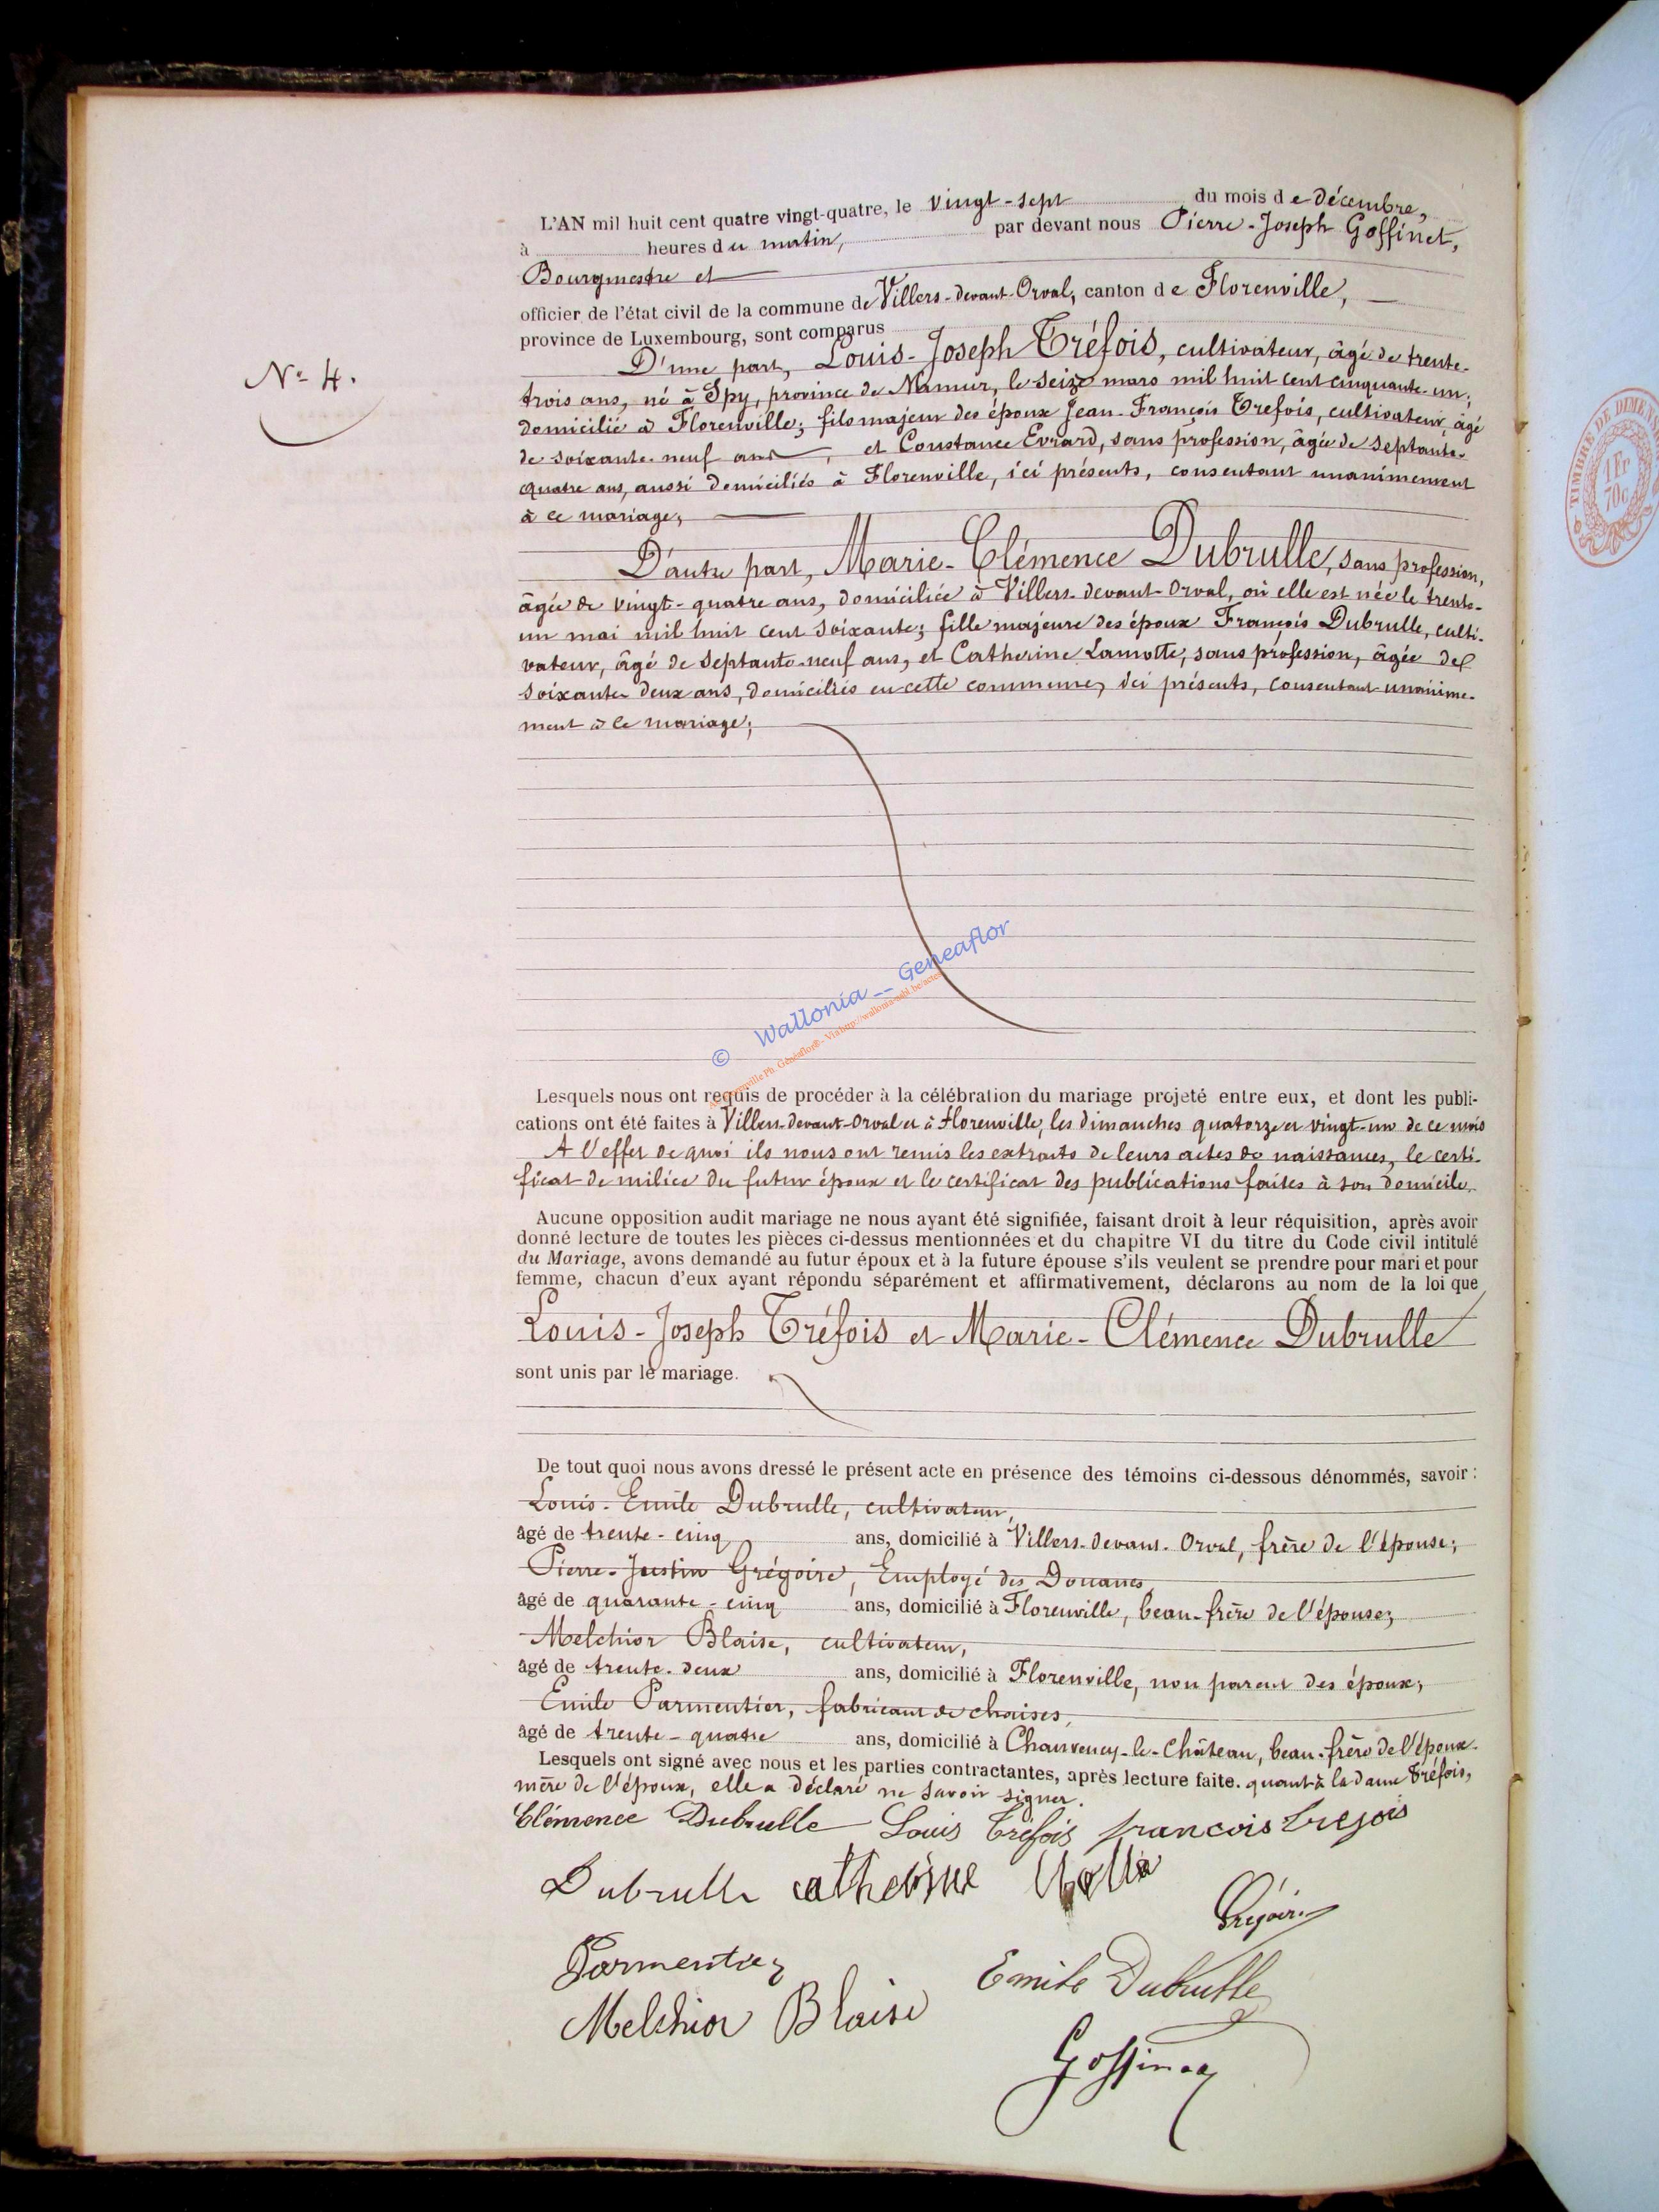 N° 4.
L'AN mil huit cent quatre vingt-quatre, le vingt-sept du mois de décembre,
à heures du matin, par devant nous Pierre-Joseph Goffinet,
Bourgmestre et
officier de l'état civil de la commune de Villers-devant-Orval, canton de Florenville,
province de Luxembourg, sont comparus
D'une part, Louis-Joseph Tréfois, cultivateur, âgé de trente-
trois ans, né à Spy, province de Namur, le seize mars mil huit cent cinquante-un;
domicilié à Florenville; fils majeur des époux Jean-François Trefois, cultivateur, âgé
de soixante-neuf ans, et Constance Evrard, sans profession, âgée de septante-
quatre ans, aussi domiciliés à Florenville, ici présents, consentant unanimement
à ce mariage;
D'autre part, Marie-Clémence Dubrulle, sans profession,
âgée de vingt-quatre ans, domiciliée à Villers-devant-Orval, où elle est née le trente-
un mai mil huit cent soixante; fille majeure des époux François Dubrulle, culti-
vateur, âgé de septante-neuf ans, et Catherine Lamotte, sans profession, âgée de
soixante-deux ans, domiciliés en cette commune, ici présents, consentant unanime-
ment à ce mariage;
© Wallonia -- Geneaflor
Lesquels nous ont requis de procéder à la célébration du mariage projeté entre eux, et dont les publi-
cations ont été faites à Villers-devant-Orval et à Florenville, les dimanches quatorze et vingt-un de ce mois
A l'effet de quoi ils nous ont remis les extraits de leurs actes de naissances, le certi-
ficat de milice du futur époux et le certificat des publications faites à son domicile.
Aucune opposition audit mariage ne nous ayant été signifiée, faisant droit à leur réquisition, après avoir
donné lecture de toutes les pièces ci-dessus mentionnées et du chapitre VI du titre du Code civil intitulé
du Mariage, avons demandé au futur époux et à la future épouse s'ils veulent se prendre pour mari et pour
femme, chacun d'eux ayant répondu séparément et affirmativement, déclarons au nom de la loi que
Louis-Joseph Tréfois et Marie-Clémence Dubrulle
sont unis par le mariage.
De tout quoi nous avons dressé le présent acte en présence des témoins ci-dessous dénommés, savoir :
Louis-Emile Dubrulle, cultivateur,
âgé de trente-cinq ans, domicilié à Villers-devant-Orval, frère de l'épouse;
Pierre-Justin Grégoire, Employé des Douanes,
âgé de quarante-cinq ans, domicilié à Florenville, beau-frère de l'épouse;
Melchior Blaise, cultivateur,
âgé de trente-deux ans, domicilié à Florenville, non parent des époux;
Emile Parmentier, fabricant de chaises,
âgé de trente-quatre ans, domicilié à Chauvency-le-Château, beau-frère de l'époux.
Lesquels ont signé avec nous et les parties contractantes, après lecture faite. quant à la dame Tréfois,
mère de l'époux, elle a déclaré ne savoir signer.
Clémence Dubrulle Louis Tréfois francois trefois
Dubrulle catherine
Grégoire
Parmentier
Emile Dubrulle
Melchior Blaise
Goffinet
TIMBRE DE DIMENS
1 Fr
70c